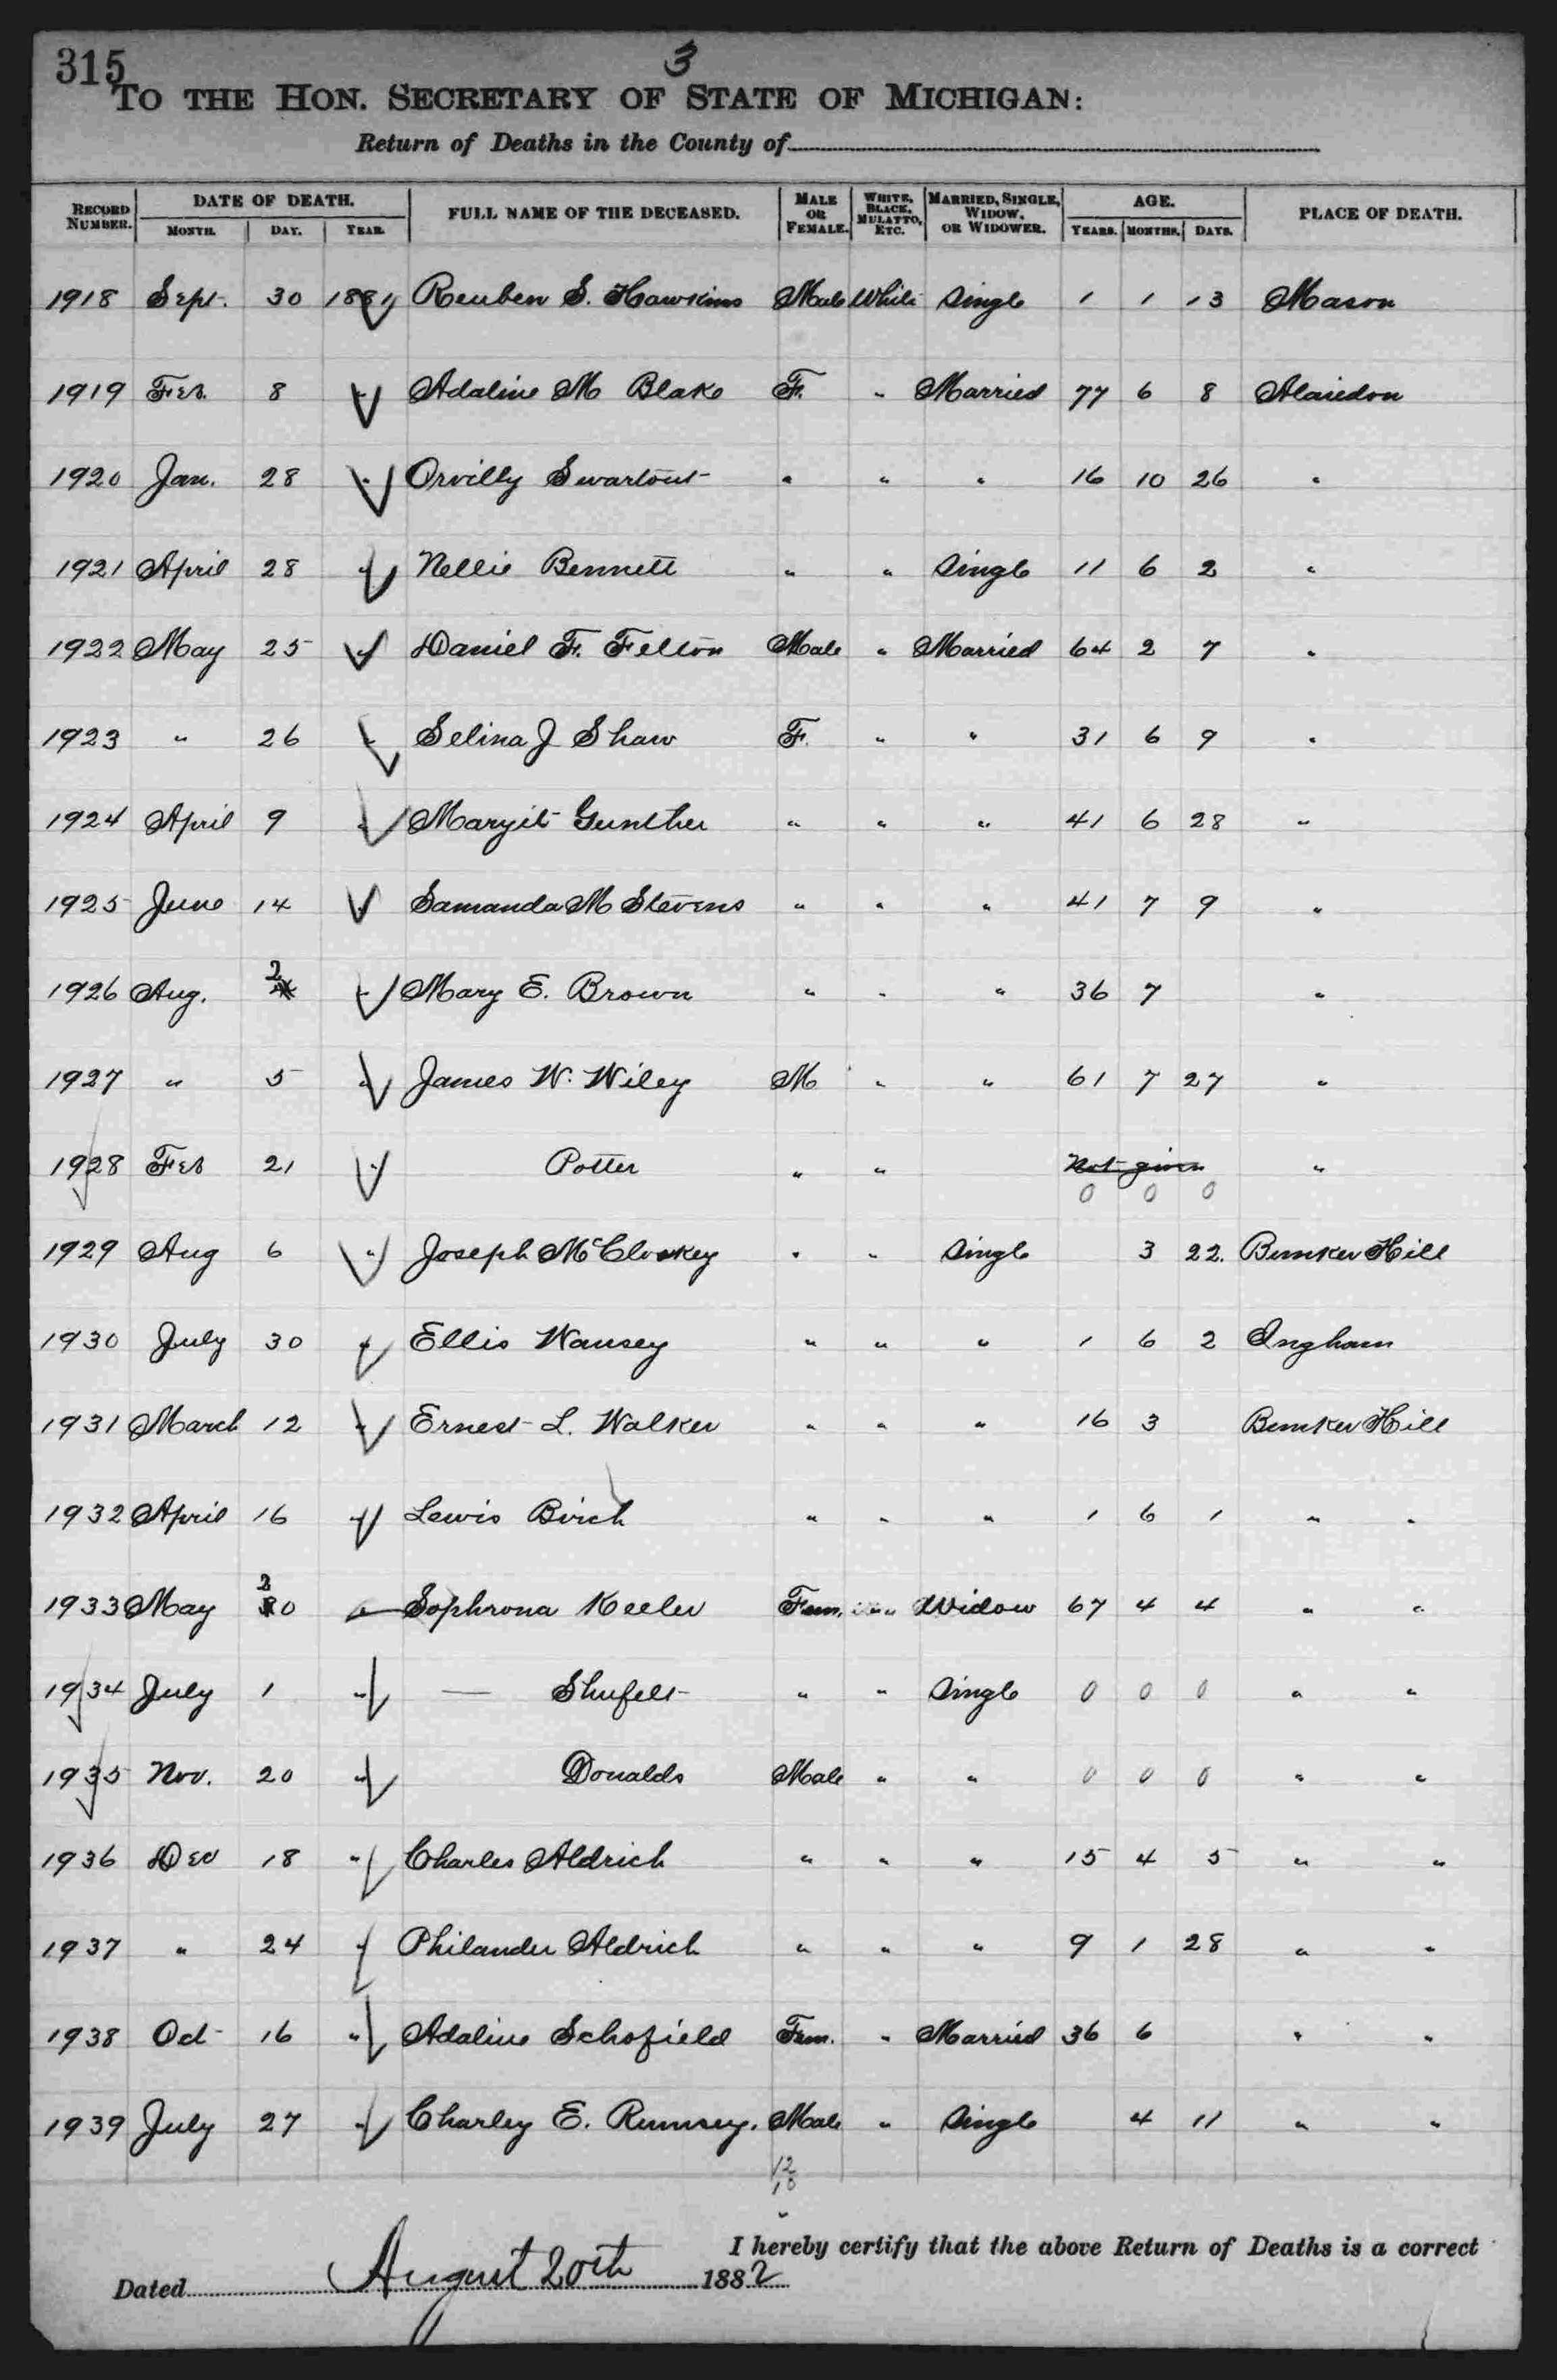 315
3
TO THE HON. SECRETARY OF STATE OF MICHIGAN:
Return of Deaths in the County of
RECORD NUMBER. DATE OF DEATH. MONTH. DAY. YEAR. FULL NAME OF THE DECEASED. MALE OR FEMALE. WHITE, BLACK, MULATTO, ETC. MARRIED, SINGLE, WIDOW, OR WIDOWER. AGE. YEARS. MONTHS. DAYS. PLACE OF DEATH.
1918 Sept. 30 1881 Reuben S. Hawkins Male White Single 1 1 13 Mason
1919 Feb. 8 " Adaline M Blake F. " Married 77 6 8 Alaiedon
1920 Jan. 28 " Orvilly Swartout " " " 16 10 26 "
1921 April 28 " Nellie Bennett " " Single 11 6 2 "
1922 May 25 " Daniel F. Felton Male " Married 64 2 7 "
1923 " 26 " Selina J Shaw F. " " 31 6 9 "
1924 April 9 " Margit Gunther " " " 41 6 28 "
1925 June 14 " Samanda M Stevens " " " 41 7 9 "
1926 Aug. 2 " Mary E. Brown " " " 36 7 "
1927 " 5 " James W. Wiley M " " 61 7 27 "
1928 Feb 21 " Potter " " Not given 0 0 0 "
1929 Aug 6 " Joseph McCloskey " " Single 3 22. Bunker Hill
1930 July 30 " Ellis Wansey " " " 1 6 2 Ingham
1931 March 12 " Ernest L. Walker " " " 16 3 Bunker Hill
1932 April 16 " Lewis Birch " " " 1 6 1 " "
1933 May 20 " Sophrona Keeler Fem. " Widow 67 4 4 " "
1934 July 1 " — Shufelt " " Single 0 0 0 " "
1935 Nov. 20 " Donalds Male " " 0 0 0 " "
1936 Dec 18 " Charles Aldrich " " " 15 4 5 " "
1937 " 24 " Philander Aldrich " " " 9 1 28 " "
1938 Oct 16 " Adaline Schofield Fem. " Married 36 6 " "
1939 July 27 " Charley E. Rumsey. Male " Single 4 11 " "
12
10
I hereby certify that the above Return of Deaths is a correct
Dated August 20th 1882